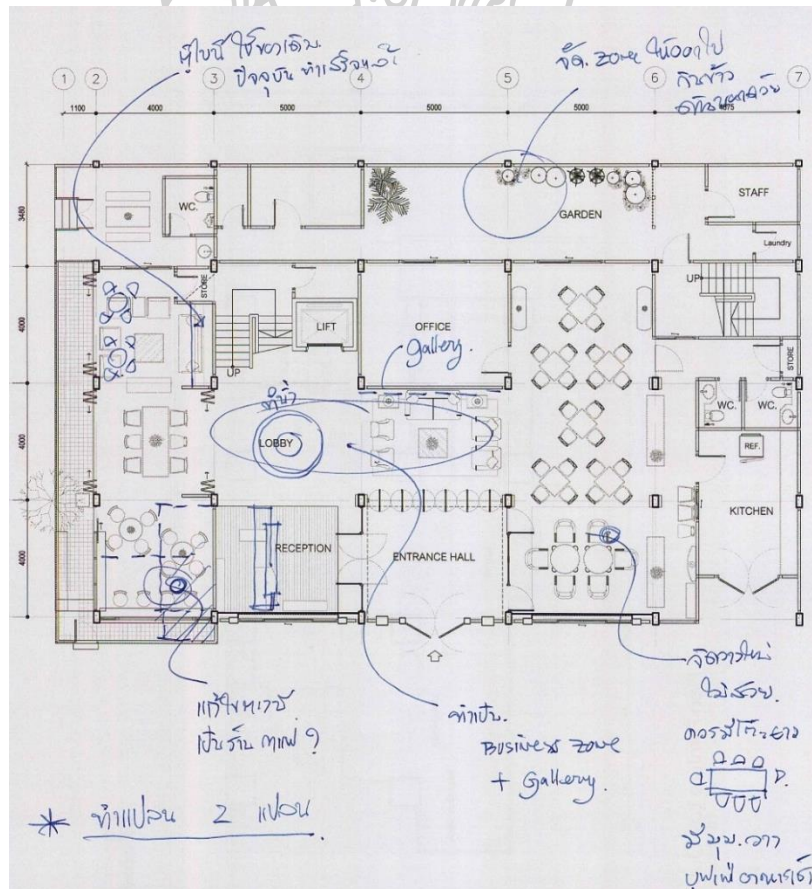 ปัจจุบัน ทำเสร็จแล้ว
จัด. ZONE ให้ออกไป
กินข้าว
1 2 3 4 5 6 7
1100 4000 5000 5000 5000
3480
4000
4000
4000
WC.
STORE
UP
LIFT
OFFICE
gallery.
GARDEN
STAFF
Laundry
UP
STORE
WC.
WC.
REF.
KITCHEN
LOBBY
RECEPTION
ENTRANCE HALL
เป็นร้าน กาแฟ ?
ทำเป็น.
BUSINESS ZONE
+ Gallery.
จัดวางใหม่
ไม่สวย.
ควรมีโต๊ะยาว
มีมุม. วาง
บุฟเฟ่ อาหารเช้า
* ทำแปลน 2 แปลน